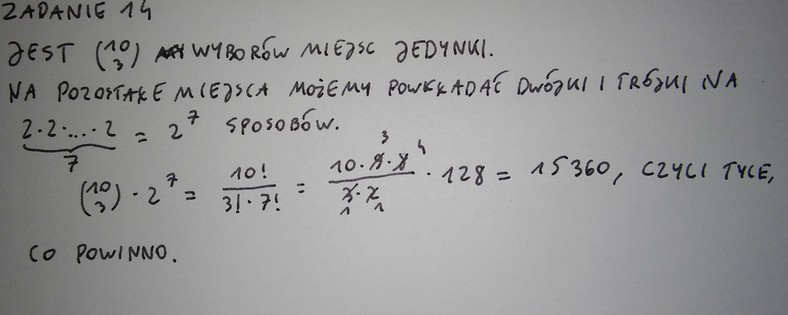 ZADANIE 14
JEST (10 3) WYBORÓW MIEJSC JEDYNKI.
NA POZOSTAŁE MIEJSCA MOŻEMY POWKŁADAĆ DWÓJKI I TRÓJKI NA
2·2·...·2 = 2^7 SPOSOBÓW.
7
(10 3) · 2^7 = 10! / 3!·7! = 10·9·8 / 3·2 · 128 = 15360, CZYLI TYLE,
3 4
1 1
CO POWINNO.